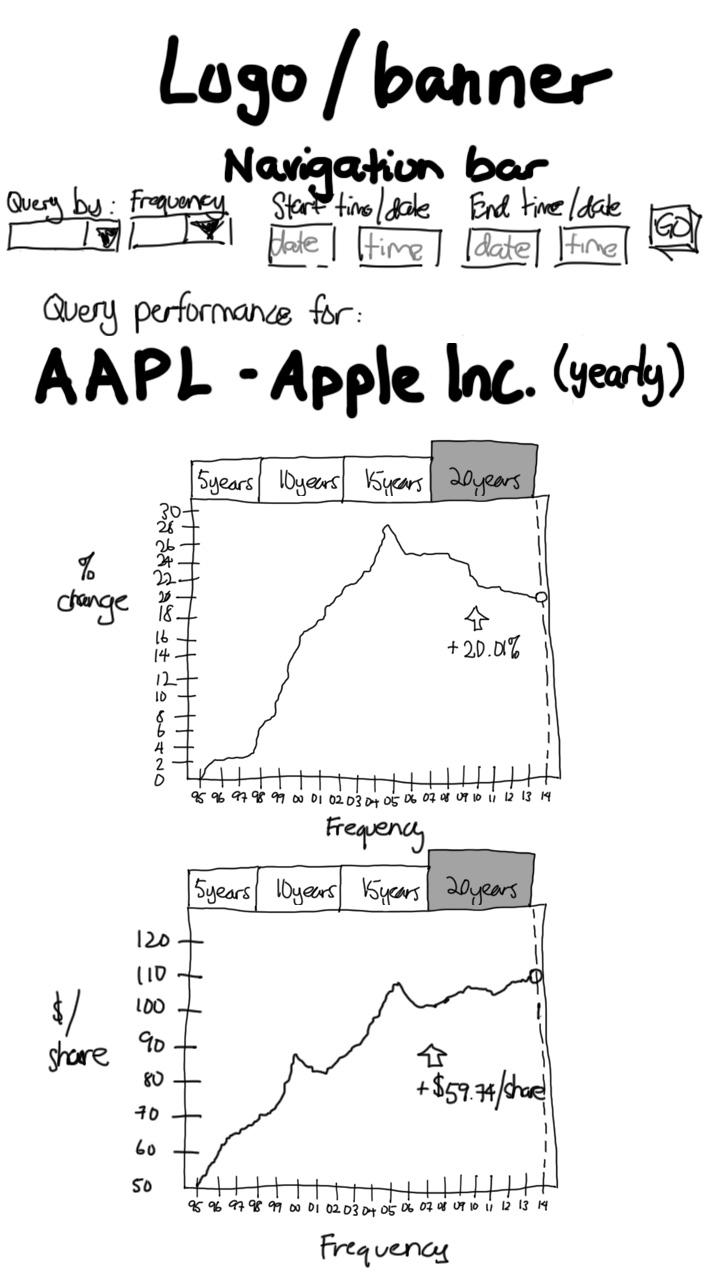 Logo / banner
Navigation bar
Query by: Frequency Start time/date End time/date
date time date time GO
Query performance for:
AAPL - Apple Inc. (yearly)
5years 10years 15years 20years
30
28
26
24
22
20
18
16
14
12
10
8
6
4
2
0
% change
+20.01%
95 96 97 98 99 00 01 02 03 04 05 06 07 08 09 10 11 12 13 14
Frequency
5years 10years 15years 20years
120
110
100
90
80
70
60
50
$/
share
+$59.74/share
95 96 97 98 99 00 01 02 03 04 05 06 07 08 09 10 11 12 13 14
Frequency